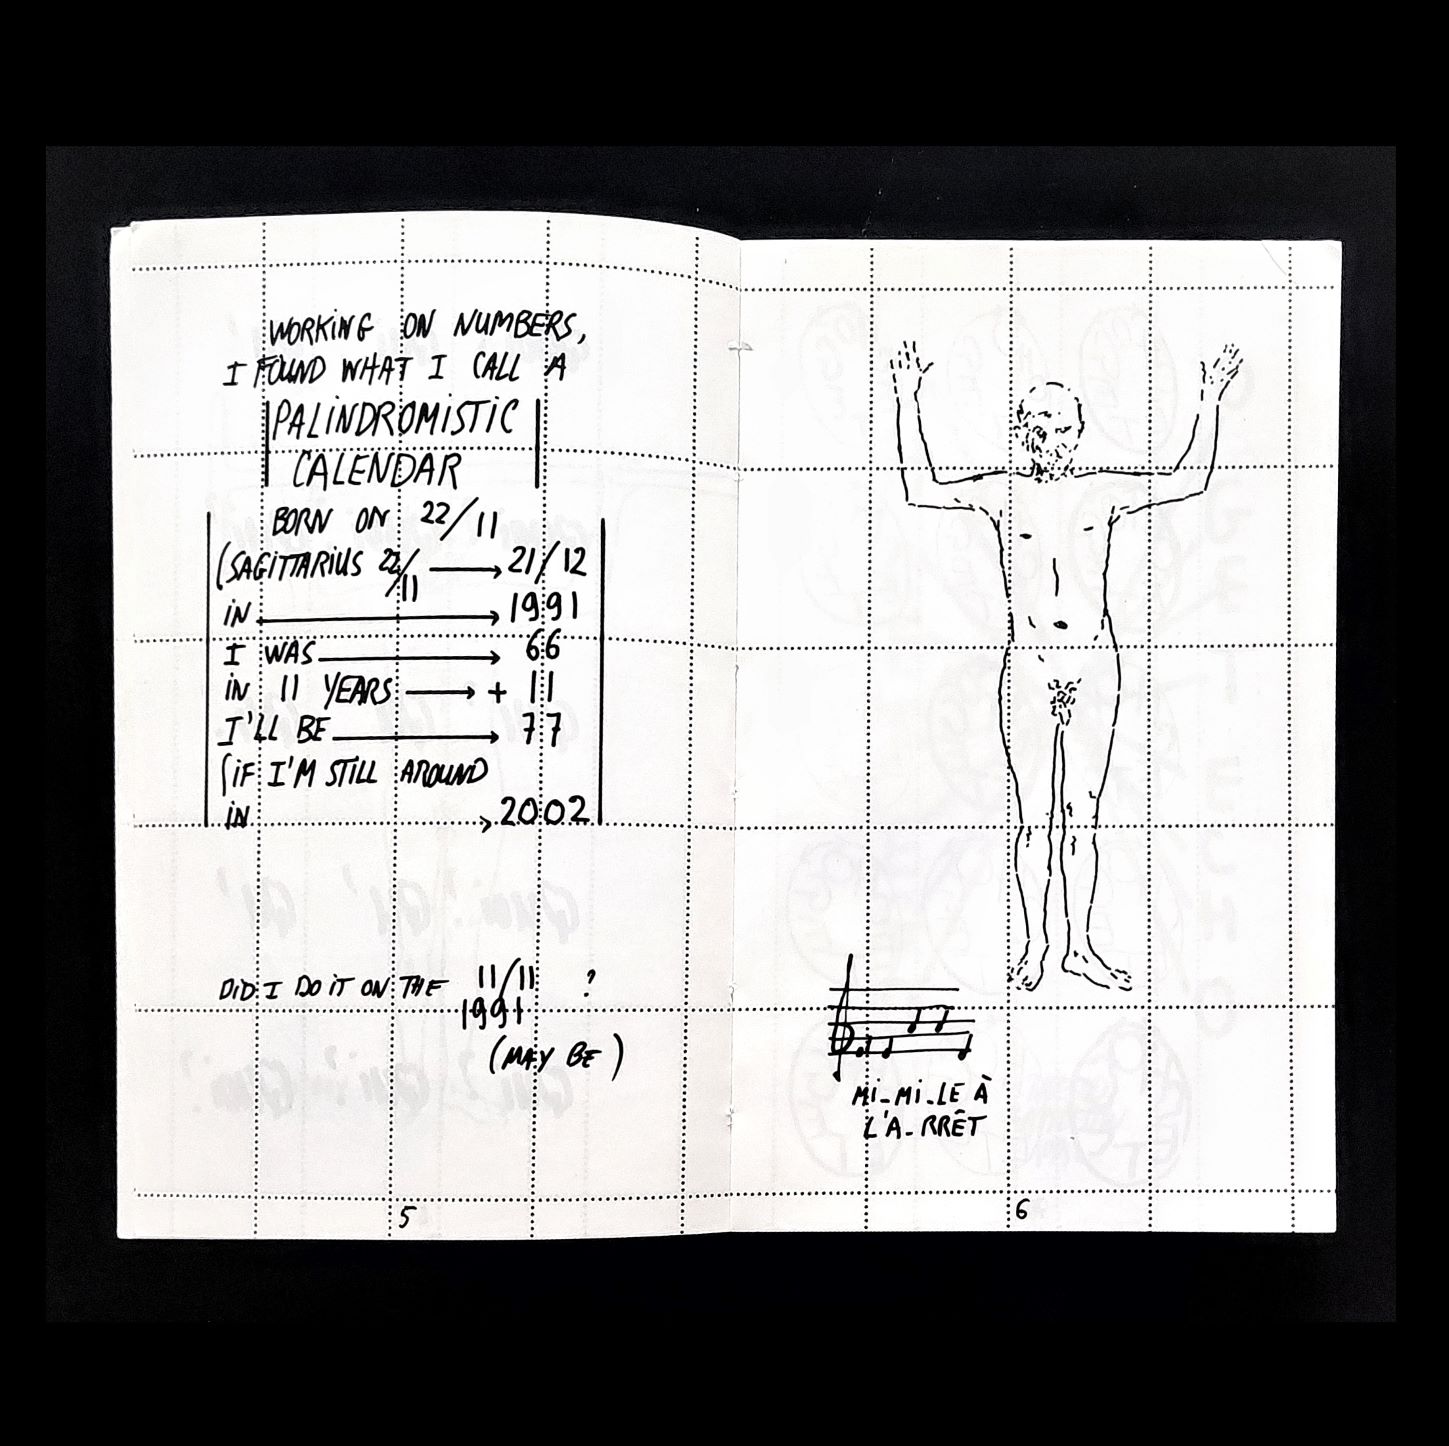 WORKING ON NUMBERS,
I FOUND WHAT I CALL A
PALINDROMISTIC
CALENDAR
BORN ON 22/11
(SAGITTARIUS 22/11 → 21/12
IN → 1991
I WAS → 66
IN 11 YEARS → + 11
I'LL BE → 77
(IF I'M STILL AROUND
IN → 2002
DID I DO IT ON THE 11/11 ?
1991
(MAY BE)
5
MI-MI-LE À
L'A-RRÊT
6